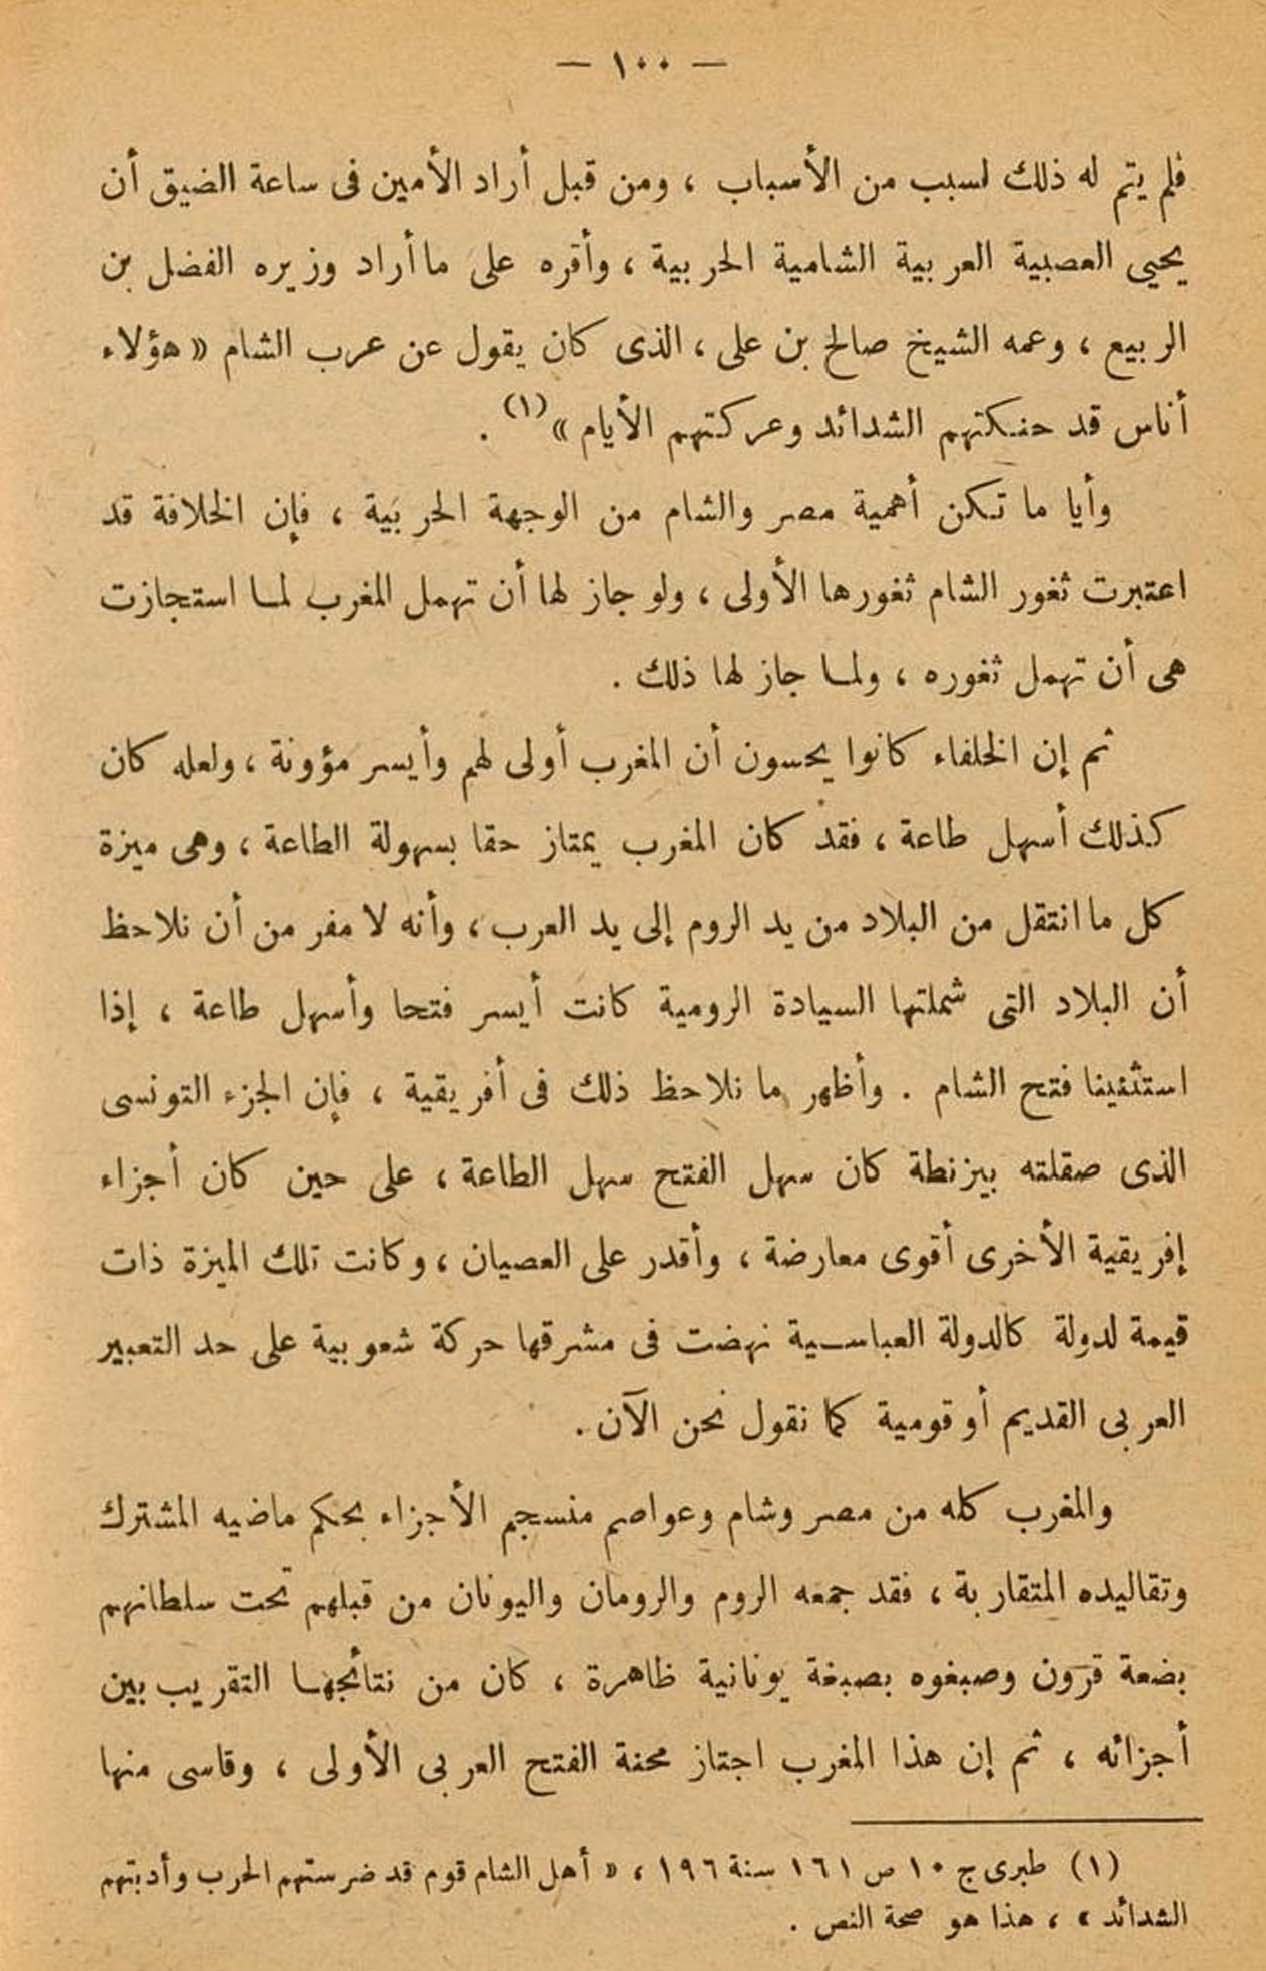 — ١٠٠ —
فلم يتم له ذلك لسبب من الأسباب ، ومن قبل أراد الأمين فى ساعة الضيق أن
يحيى العصبية العربية الشامية الحربية ، وأقره على ما أراد وزيره الفضل بن
الربيع ، وعمه الشيخ صالح بن على ، الذى كان يقول عن عرب الشام « هؤلاء
أناس قد حنكتهم الشدائد وعركتهم الأيام » (١) .
وأيا ما تكن أهمية مصر والشام من الوجهة الحربية ، فإن الخلافة قد
اعتبرت ثغور الشام ثغورها الأولى ، ولو جاز لها أن تهمل المغرب لما استجازت
هى أن تهمل ثغوره ، ولما جاز لها ذلك .
ثم إن الخلفاء كانوا يحسون أن المغرب أولى لهم وأيسر مؤونة ، ولعله كان
كذلك أسهل طاعة ، فقد كان المغرب يمتاز حقا بسهولة الطاعة ، وهى ميزة
كل ما انتقل من البلاد من يد الروم إلى يد العرب ، وأنه لا مفر من أن نلاحظ
أن البلاد التى شملتها السيادة الرومية كانت أيسر فتحا وأسهل طاعة ، إذا
استثنينا فتح الشام . وأظهر ما نلاحظ ذلك فى أفريقية ، فإن الجزء التونسى
الذى صقلته بيزنطة كان سهل الفتح سهل الطاعة ، على حين كان أجزاء
إفريقية الأخرى أقوى معارضة ، وأقدر على العصيان ، وكانت تلك الميزة ذات
قيمة لدولة كالدولة العباسية نهضت فى مشرقها حركة شعوبية على حد التعبير
العربى القديم أو قومية كما نقول نحن الآن .
والمغرب كله من مصر وشام وعواصم منسجم الأجزاء بحكم ماضيه المشترك
وتقاليده المتقاربة ، فقد جمعه الروم والرومان واليونان من قبلهم تحت سلطانهم
بضعة قرون وصبغوه بصبغة يونانية ظاهرة ، كان من نتائجها التقريب بين
أجزائه ، ثم إن هذا المغرب اجتاز محنة الفتح العربى الأولى ، وقاسى منها
(١) طبرى ج ١٠ ص ١٦١ سنة ١٩٦ ، « أهل الشام قوم قد ضرستهم الحرب وأدبتهم
الشدائد » ، هذا هو صحة النص .